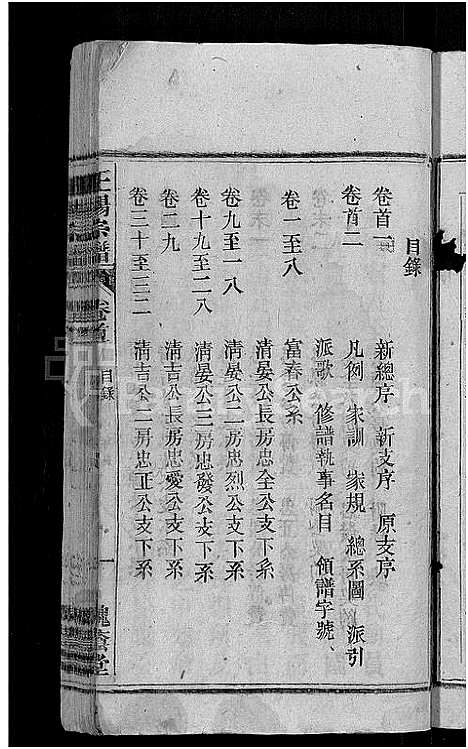 目錄
卷首一 新總序 新支序 原支序
卷首二 凡例 家訓 家規 總系圖 派引
派歌 修譜執事名目 領譜字號、
卷一至八 富春公系
清晏公長房忠全公支下系
卷九至一八 清晏公二房忠烈公支下系
卷十九至二八 清晏公三房忠發公支下系
卷二九 清吉公長房忠愛公支下系
卷三十至三二 清吉公二房忠正公支下系
王楊宗譜 卷首 目錄 一 槐蔭堂